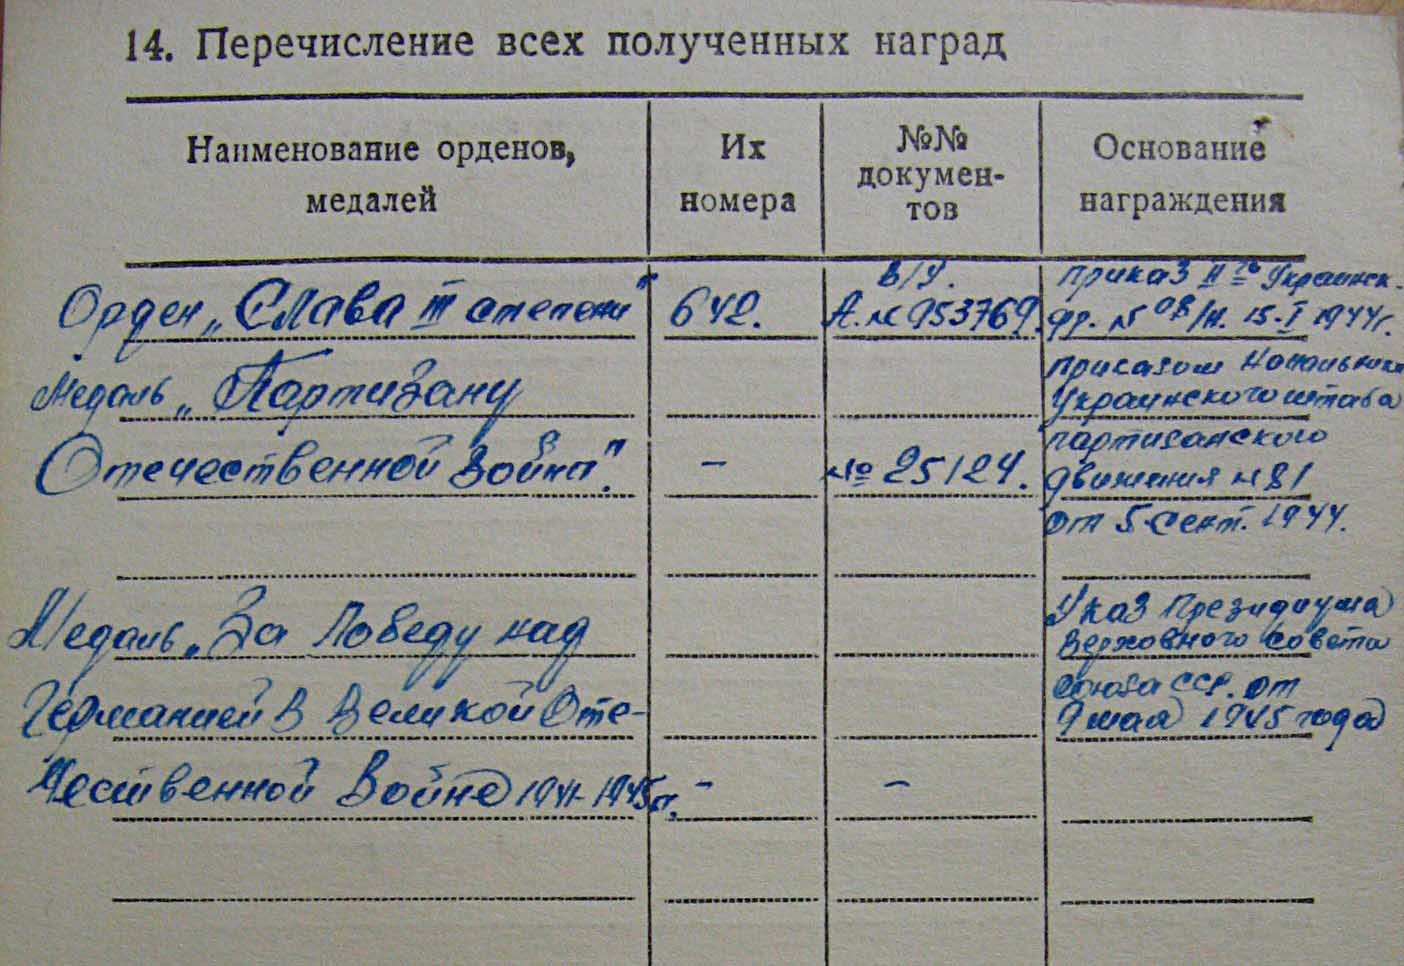 14. Перечисление всех полученных наград
Наименование орденов,
медалей
Их
номера
№№
докумен-
тов
Основание
награждения
Орден „Слава III степени"
642.
В/У.
А. № 953769.
Приказ II го Украинск.
фр. № 08/н. 15-I 1944г.
Медаль „Партизану
Отечественной Войны".
–
№ 25124.
Приказом Начальника
Украинского штаба
партизанского
движения № 81
от 5 Сент. 1944.
Медаль „За Победу над
Германией в Великой Оте-
чественной Войне 1941-1945гг.
–
–
Указ Президиума
Верховного Совета
Союза ССР. от
9 мая 1945 года